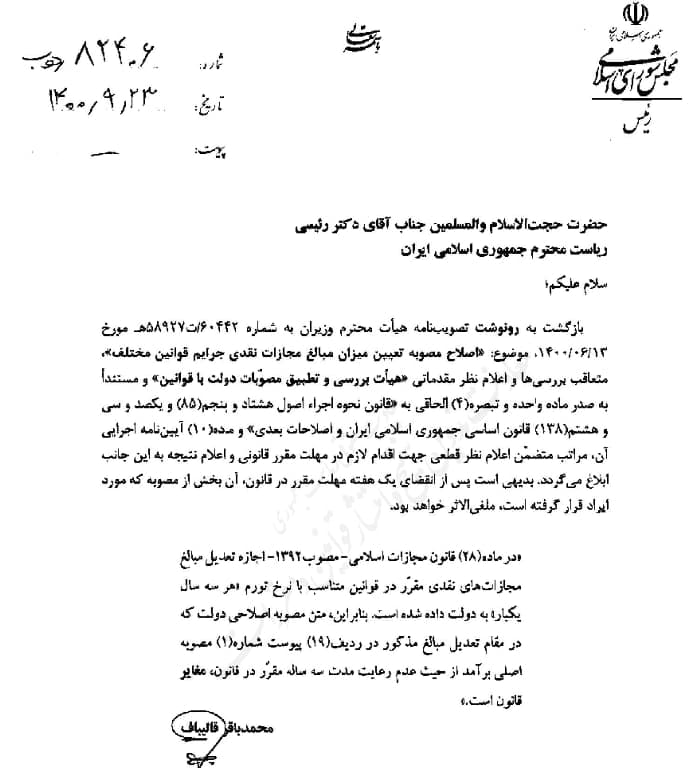 باسمه تعالی
جمهوری اسلامی ایران
مجلس شورای اسلامی
رئیس
شماره: ۸۲۴۰۶
تاریخ: ۱۴۰۰/۹/۲۳
پیوست: —
حضرت حجت‌الاسلام والمسلمین جناب آقای دکتر رئیسی
ریاست محترم جمهوری اسلامی ایران
سلام علیکم؛
بازگشت به رونوشت تصویب‌نامه هیأت محترم وزیران به شماره ۶۰۴۴۲/ت۵۸۹۲۷هـ مورخ
۱۴۰۰/۰۶/۱۳، موضوع: «اصلاح مصوبه تعیین میزان مبالغ مجازات نقدی جرایم قوانین مختلف»،
متعاقب بررسی‌ها و اعلام نظر مقدماتی «هیأت بررسی و تطبیق مصوّبات دولت با قوانین» و مستنداً
به صدر ماده واحده و تبصره(۴) الحاقی به «قانون نحوه اجراء اصول هشتاد و پنجم(۸۵) و یکصد و سی
و هشتم(۱۳۸) قانون اساسی جمهوری اسلامی ایران و اصلاحات بعدی» و ماده(۱۰) آیین‌نامه اجرایی
آن، مراتب متضمّن اعلام نظر قطعی جهت اقدام لازم در مهلت مقرر قانونی و اعلام نتیجه به این جانب
ابلاغ می‌گردد. بدیهی است پس از انقضای یک هفته مهلت مقرر در قانون، آن بخش از مصوبه که مورد
ایراد قرار گرفته است، ملغی‌الاثر خواهد بود.
«در ماده(۲۸) قانون مجازات اسلامی-مصوب۱۳۹۲-اجازه تعدیل مبالغ
مجازات‌های نقدی مقرّر در قوانین متناسب با نرخ تورم «هر سه سال
یکبار» به دولت داده شده است. بنابراین، متن مصوبه اصلاحی دولت که
در مقام تعدیل مبالغ مذکور در ردیف(۱۹) پیوست شماره(۱) مصوبه
اصلی برآمد از حیث عدم رعایت مدت سه ساله مقرّر در قانون، مغایر
قانون است.»
محمدباقر قالیباف